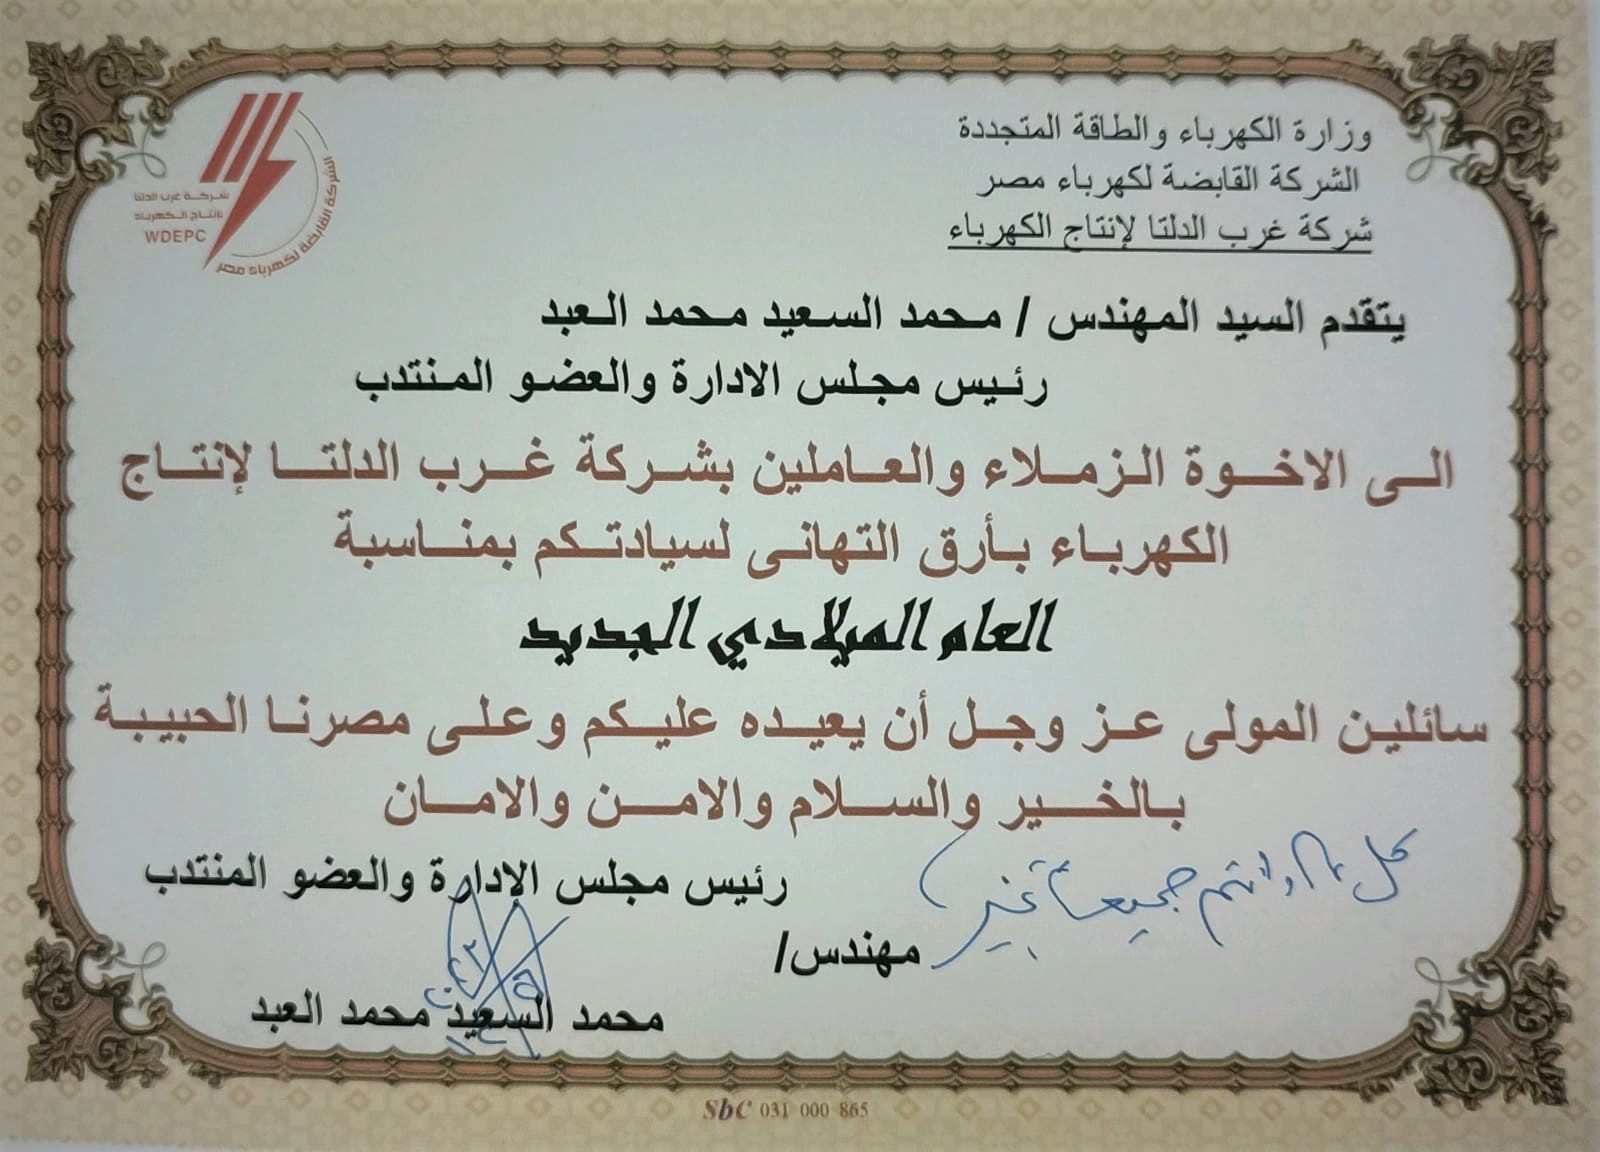 وزارة الكهرباء والطاقة المتجددة
الشركة القابضة لكهرباء مصر
شركة غرب الدلتا لإنتاج الكهرباء
شركة غرب الدلتا
لإنتاج الكهرباء
WDEPC
الشركة القابضة لكهرباء مصر
يتقدم السيد المهندس / محمد السعيد محمد العبد
رئيس مجلس الادارة والعضو المنتدب
الى الاخوة الزملاء والعاملين بشركة غرب الدلتا لإنتاج
الكهرباء بأرق التهانى لسيادتكم بمناسبة
العام الميلادي الجديد
سائلين المولى عز وجل أن يعيده عليكم وعلى مصرنا الحبيبة
بالخير والسلام والامن والامان
كل عام وانتم جميعا بخير
رئيس مجلس الإدارة والعضو المنتدب
مهندس/
محمد السعيد محمد العبد
SbC 031 000 865